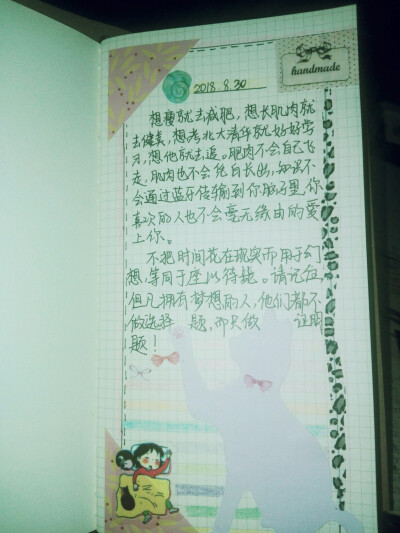 handmade
2018.8.30
想瘦就去减肥，想长肌肉就
去健美，想考北大清华就好好学
习，想他就去追。肥肉不会自己飞
走，肌肉也不会凭白长出，知识不
会通过蓝牙传输到你脑子里，你
喜欢的人也不会毫无缘由的爱
上你。
不把时间花在现实而用于幻
想，等同于坐以待毙。请记住
但凡拥有梦想的人，他们都不
做选择 题，而只做 证明
题！